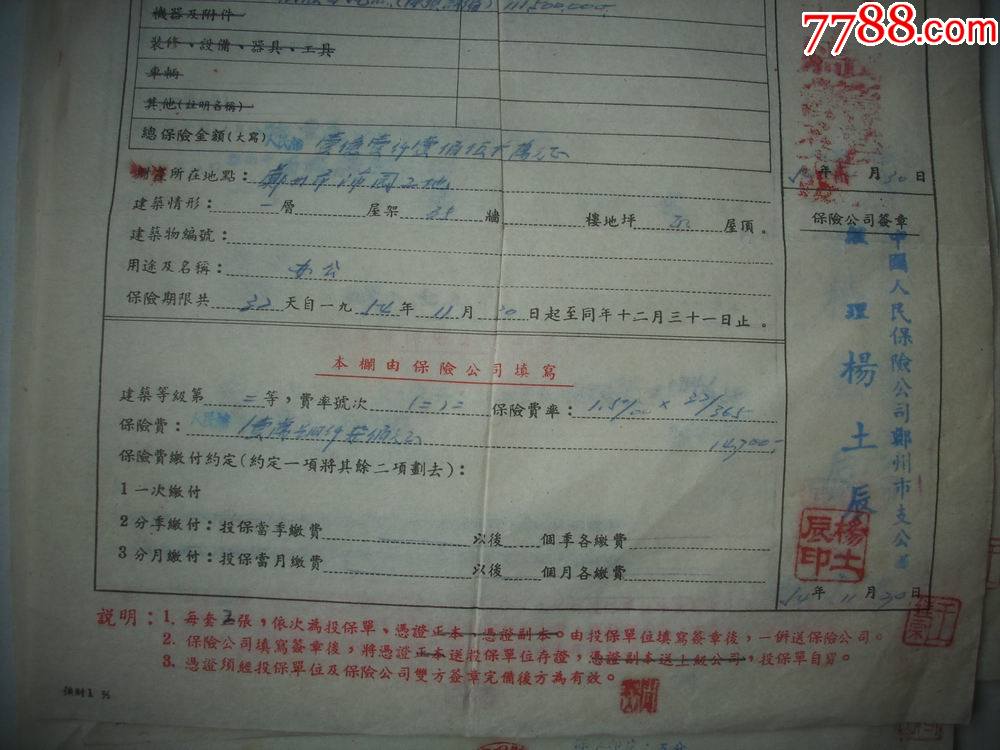 7788.com
111,500,000.
機器及附件
裝修、設備、器具、工具
車輛
其他(註明名稱)
總保險金額(大寫) 人民幣 壹億壹仟壹佰伍十萬元
所在地點:鄭州市
年 月 30 日
建築情形: 一 層 屋架 牆 樓地坪 屋頂。
保險公司簽章
建築物編號:
用途及名稱: 办公
保險期限共 32 天自一九 54 年 11 月 30 日起至同年十二月三十一日止。
中國人民保險公司鄭州市支公司
經理 楊士辰
本欄由保險公司填寫
建築等級第 三 等,費率號次 保險費率: 1.5‰ × /365
保險費: 人民幣 14,700-
保險費繳付約定(約定一項將其餘二項劃去):
1 一次繳付
2 分季繳付:投保當季繳費 以後 個季各繳費
3 分月繳付:投保當月繳費 以後 個月各繳費
楊士辰印
54 年 11 月 30 日
說明:1. 每套 張,依次為投保單、憑證正本、憑證副本。由投保單位填寫簽章後,一併送保險公司。
2. 保險公司填寫簽章後,將憑證正本送投保單位存證,憑證副本送上級公司,投保單自留。
3. 憑證須經投保單位及保險公司雙方簽章完備後方為有效。